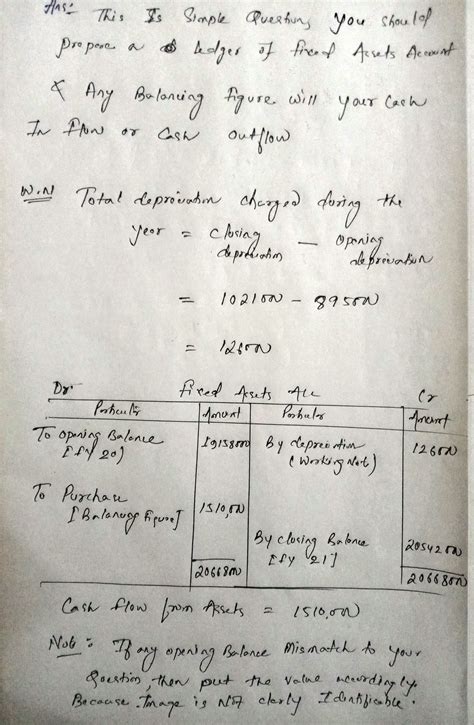 Ans:- This Is Simple Question, You should
prepare a ledger of fixed Assets Account
& Any Balancing figure will your Cash
In flow or Cash outflow
W.N Total depreciation charged during the
year = closing depreciation - opening depreciation
= 102100 - 89500
= 12600
Dr. Fixed Assets A/c Cr
Particulr Amount Particulr Amount
To opening Balance 1915800 By depreciation 12600
[FY 20] (Working Note)
To Purchase 1510,00
[Balancing Figure]
By closing Balance 2054200
[FY 21]
2066800 2066800
Cash flow from Assets = 1510,00
Note :- If any opening Balance Mismatch to your
Question, then put the value accordingly.
Because Image is Not clarly Identifiable.